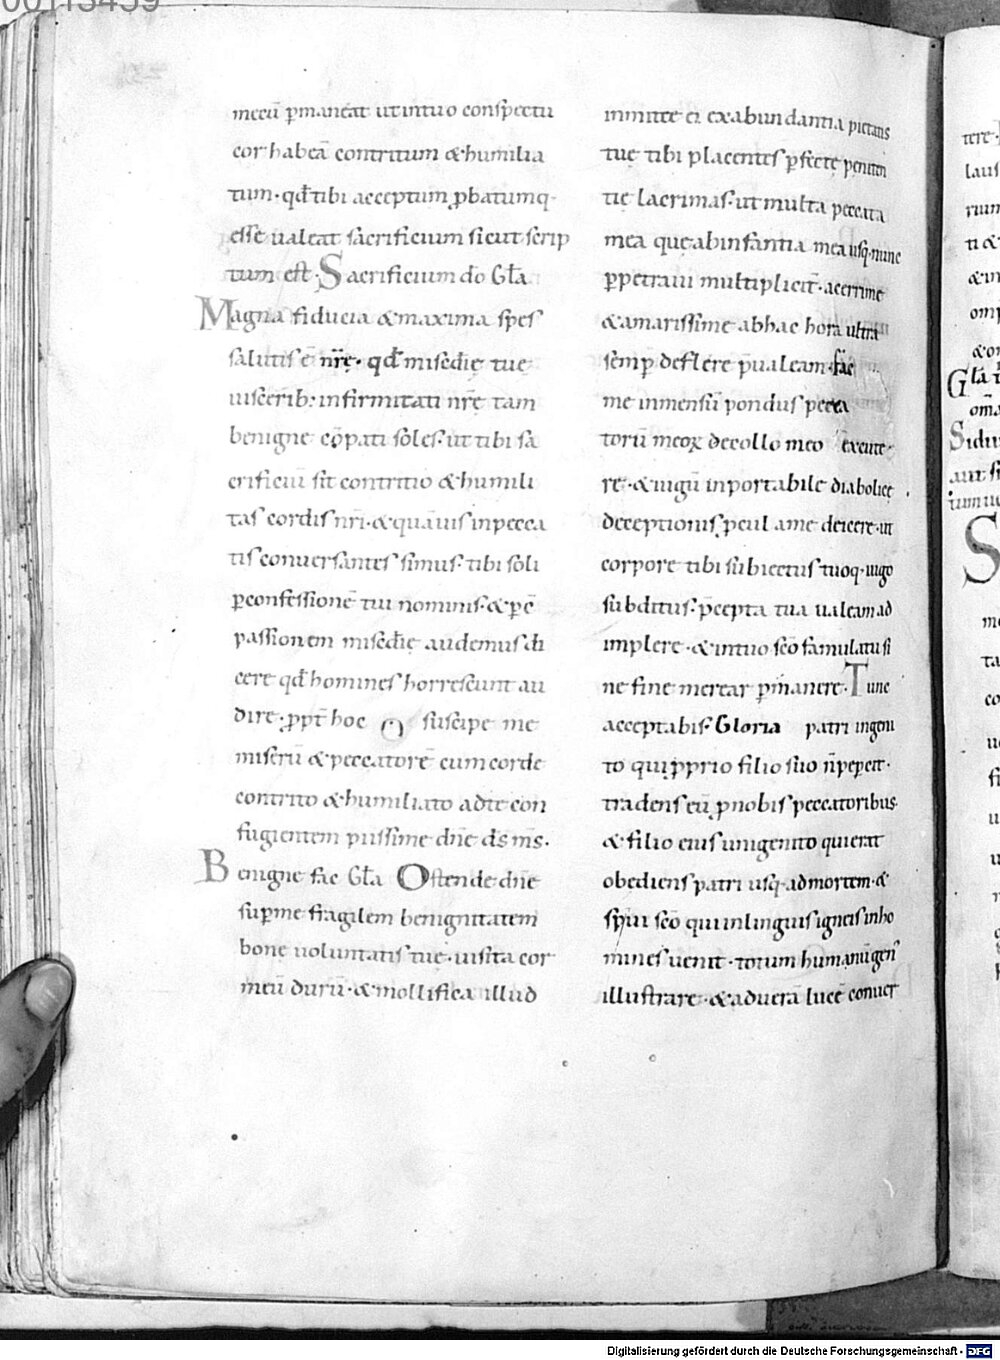 mecū ꝑmaneat ut intuo conspectu
cor habeā contritum & humilia
tum · qđ tibi acceptum ꝓbatumq·
esse ualeat sacrificium sicut scrip
tum est · Sacrificium dō Gła
Magna fiducia & maxima spes
salutis ē nr̄ę · qđ misēdię tuę
uiscerib: infirmitati nr̄ę tam
benigne cōpati soles · ut tibi sa
crificiū sit contritio & humili
tas cordis nr̄i · & quāuis inpecca
tis conuersantes simus · tibi soli
ꝑ confessionē tui nominis · & ꝑ cō
passionem misēdię audemus di
cere qđ homines horrescunt au
dire · ꝓpt̄ hoc O suscipe me
miserū & peccatorē cum corde
contrito & humiliato adte con
fugientem piissime dn̄e ds̄ ms̄ ·
Benigne fac Gła Ostende dn̄e
suꝑme fragilem benignitatem
bonę uoluntatis tuę · uisita cor
meū durū · & mollifica illud
inmitte ei ex abundantia pietatis
tuę tibi placentes ꝑfectę peniten
tię lacrimas · ut multa peccata
mea quę ab infantia mea usq· nunc
ꝑpetraui multipliciť · acerrime
& amarissime abhac hora ultra
semꝑ deflere p̄ualeam · fac
me inmensū pondus pecca
torū meoꝝ decollo meo excute
re · & iugū inportabile diabolicę
deceptionis ꝓcul ame deicere · ut
corpore tibi subiectus tuoq· iugo
subditus · p̄cepta tua ualeam ad
implere · & intuo scō famulatu si
ne fine merear ꝑmanere · Tunc
acceptabis · Gloria patri ingeni
to qui ꝓprio filio suo n̄ peꝑcit ·
tradens eū ꝓ nobis peccatoribus
& filio eius unigenito qui erat
obediens patri usq· ad mortem · &
sp̄ui scō qui in linguis igneis in ho
mines uenit · totum humanū gen᾽
illustrare · & ad uerā lucē conuer
Digitalisierung gefördert durch die Deutsche Forschungsgemeinschaft - DFG